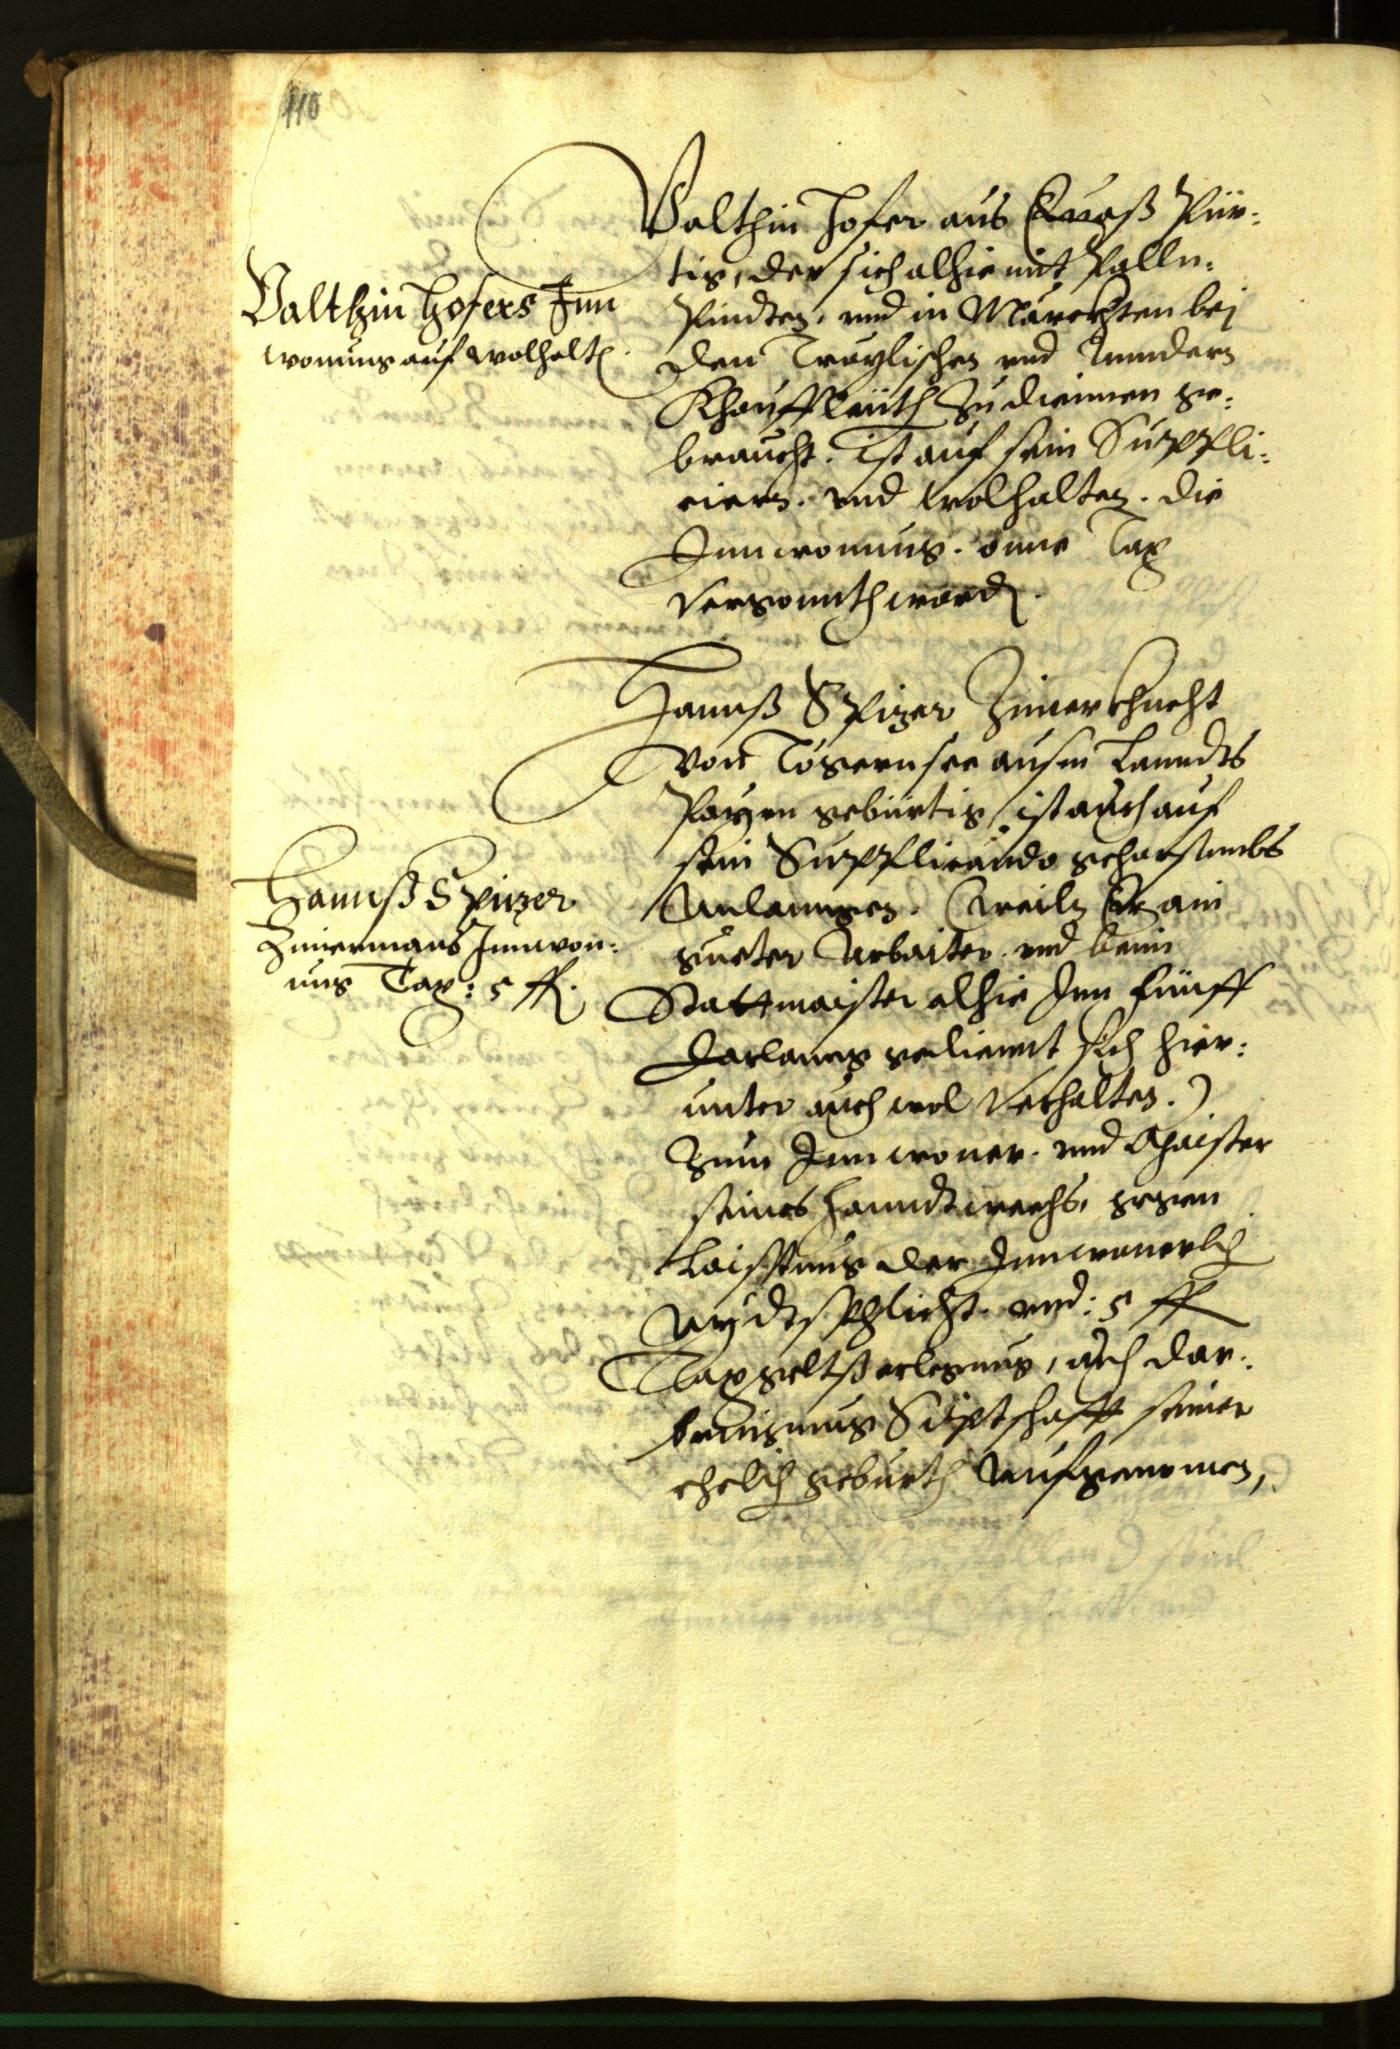 110
Valthin Hofers Inn
wonung auf wolhalt(en).
Valthin Hofer aus Pür-
tig, der sich alhie mit Palln-
Pindten, und in Märckhten bej
den und Anndern
Khauffleüth Zudiennen ge-
braucht. Ist auf sein Suppli-
ciern. und wolhalten. die
Innwonung. onne Tax
Vergonnth word(en).
Hannß Spizer
Zimermans Innwon-
ung Tax: 5 fl.
Hannß Spizer Zimerkhnecht
von Tögernsee ausm Lanndts
Payrn gebürtig, ist auch auf
sein Supplicando gehorsambs
Anlanngen. (weiln Er ain
gueter Arbaiter. und beim
Stattmaister alhie Inn fünff
Jarlanng gediennt sich hier-
unter auch wol Verhalten.)
Zum Innwoner. und Maister
seines Hanndtwerchs, gegen
Laisstung der Innwonerlich
Aydtspflicht. und: 5 fl
Taxgeltß erlegung, auch dar-
bringung Potschafft seiner
ehelich geburth Aufgenomen,